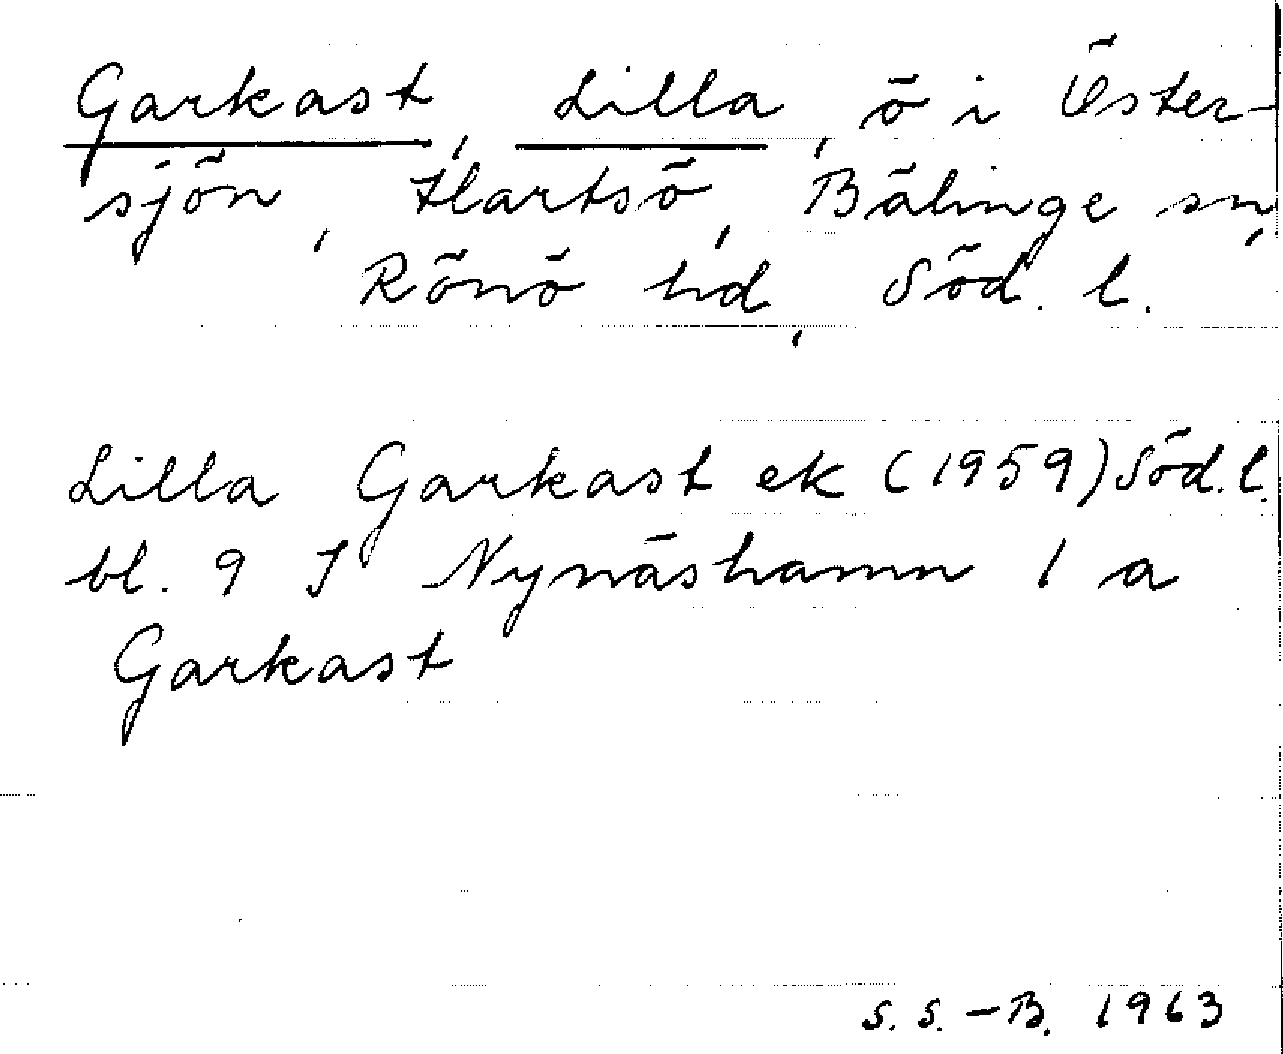 Garkast, Lilla, ö i Öster-
sjön, Hartsö, Bälinge sn,
Rönö hd, Söd. l.
Lilla Garkast ek (1959) Söd. l.
bl. 9 I Nynäshamn 1 a
Garkast
S. S. - B. 1963